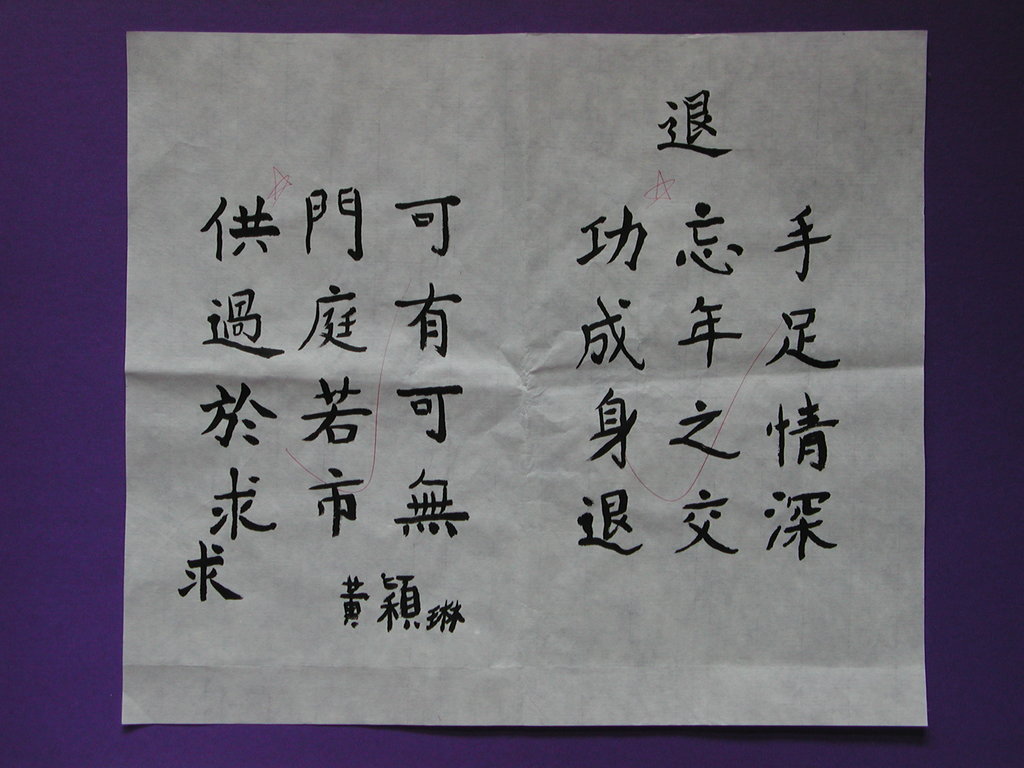 退
手足情深
忘年之交
功成身退
可有可無
門庭若市
供過於求
求
黃穎琳